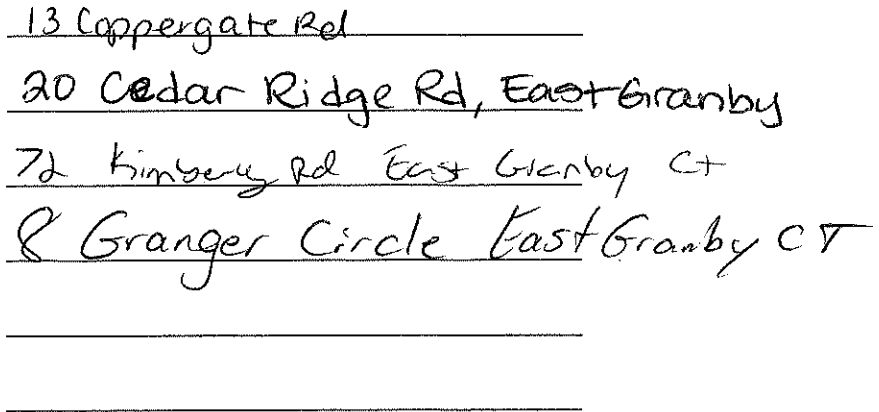 13 Coppergate Rd
20 Cedar Ridge Rd, East Granby
72 Kimberly Rd East Granby CT
8 Granger Circle East Granby CT